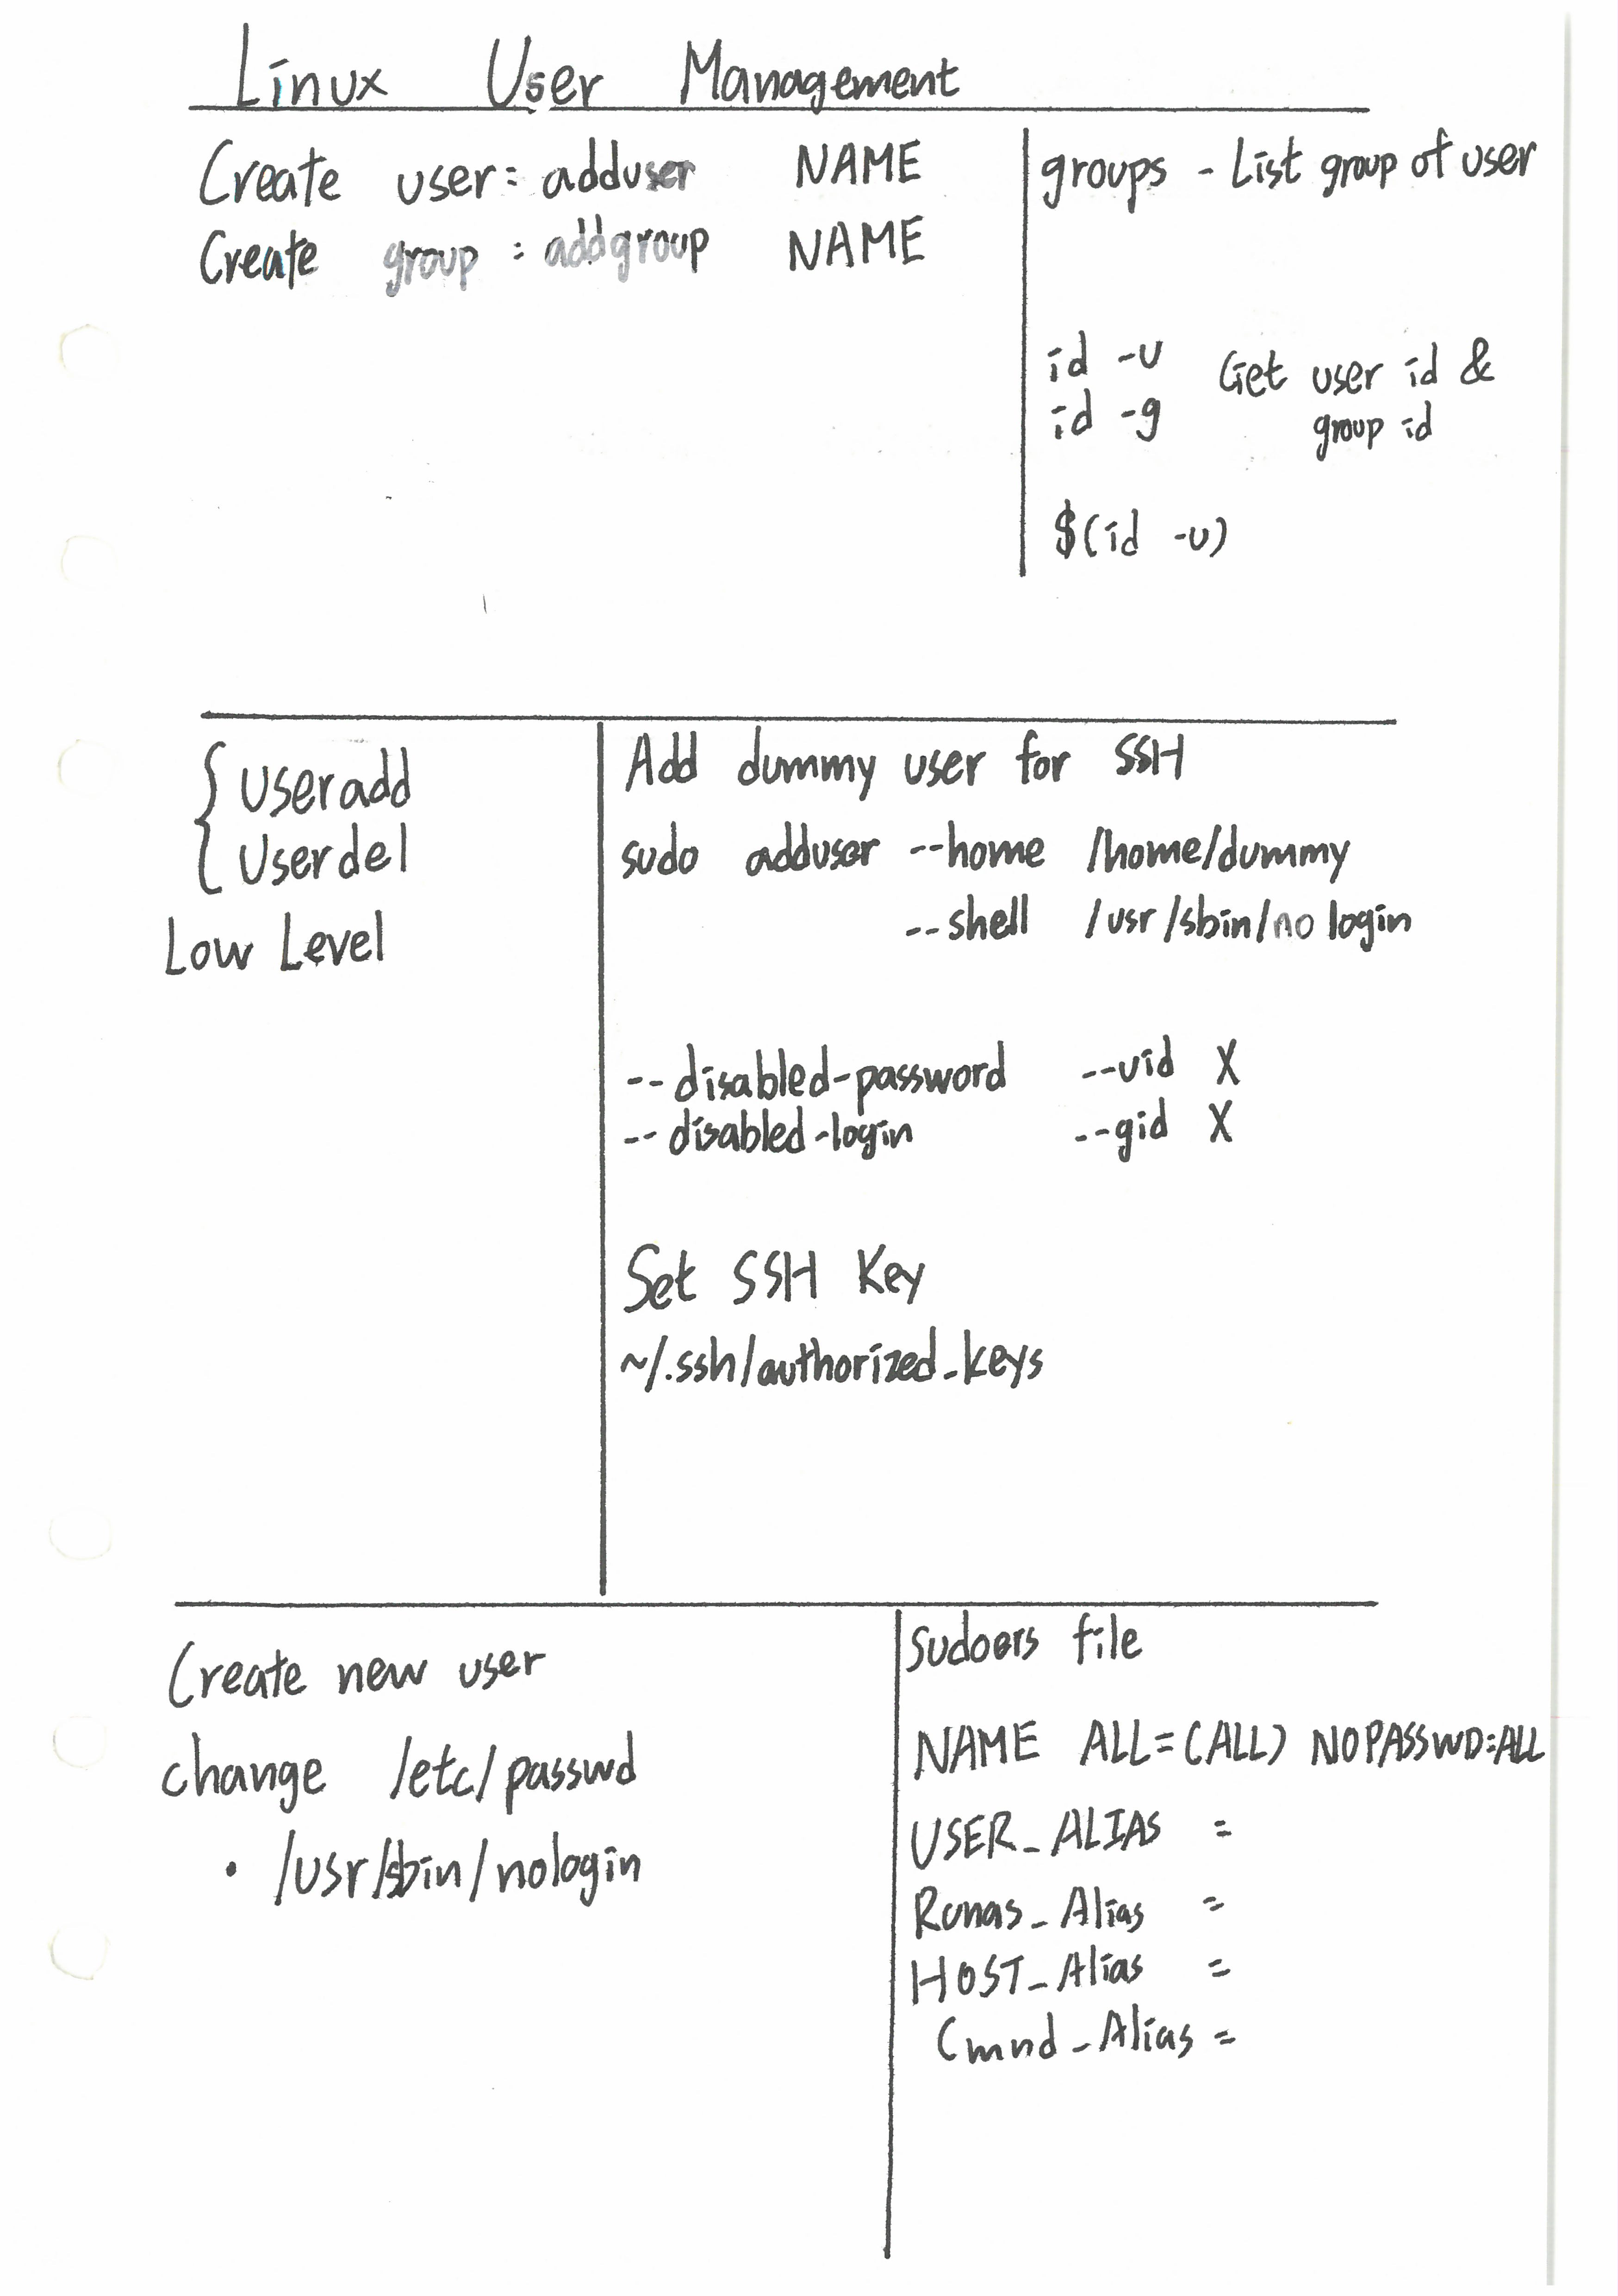 Linux User Management
Create user: adduser NAME
Create group: addgroup NAME
groups - List group of user
id -u Get user id &
id -g group id
$(id -u)
{ Useradd
{ Userdel
Low Level
Add dummy user for SSH
sudo adduser --home /home/dummy
--shell /usr/sbin/nologin
--disabled-password --uid X
--disabled-login --gid X
Set SSH Key
~/.ssh/authorized_keys
Create new user
change /etc/passwd
• /usr/sbin/nologin
Sudoers file
NAME ALL=(ALL) NOPASSWD:ALL
USER_ALIAS =
Runas_Alias =
HOST_Alias =
Cmnd_Alias =